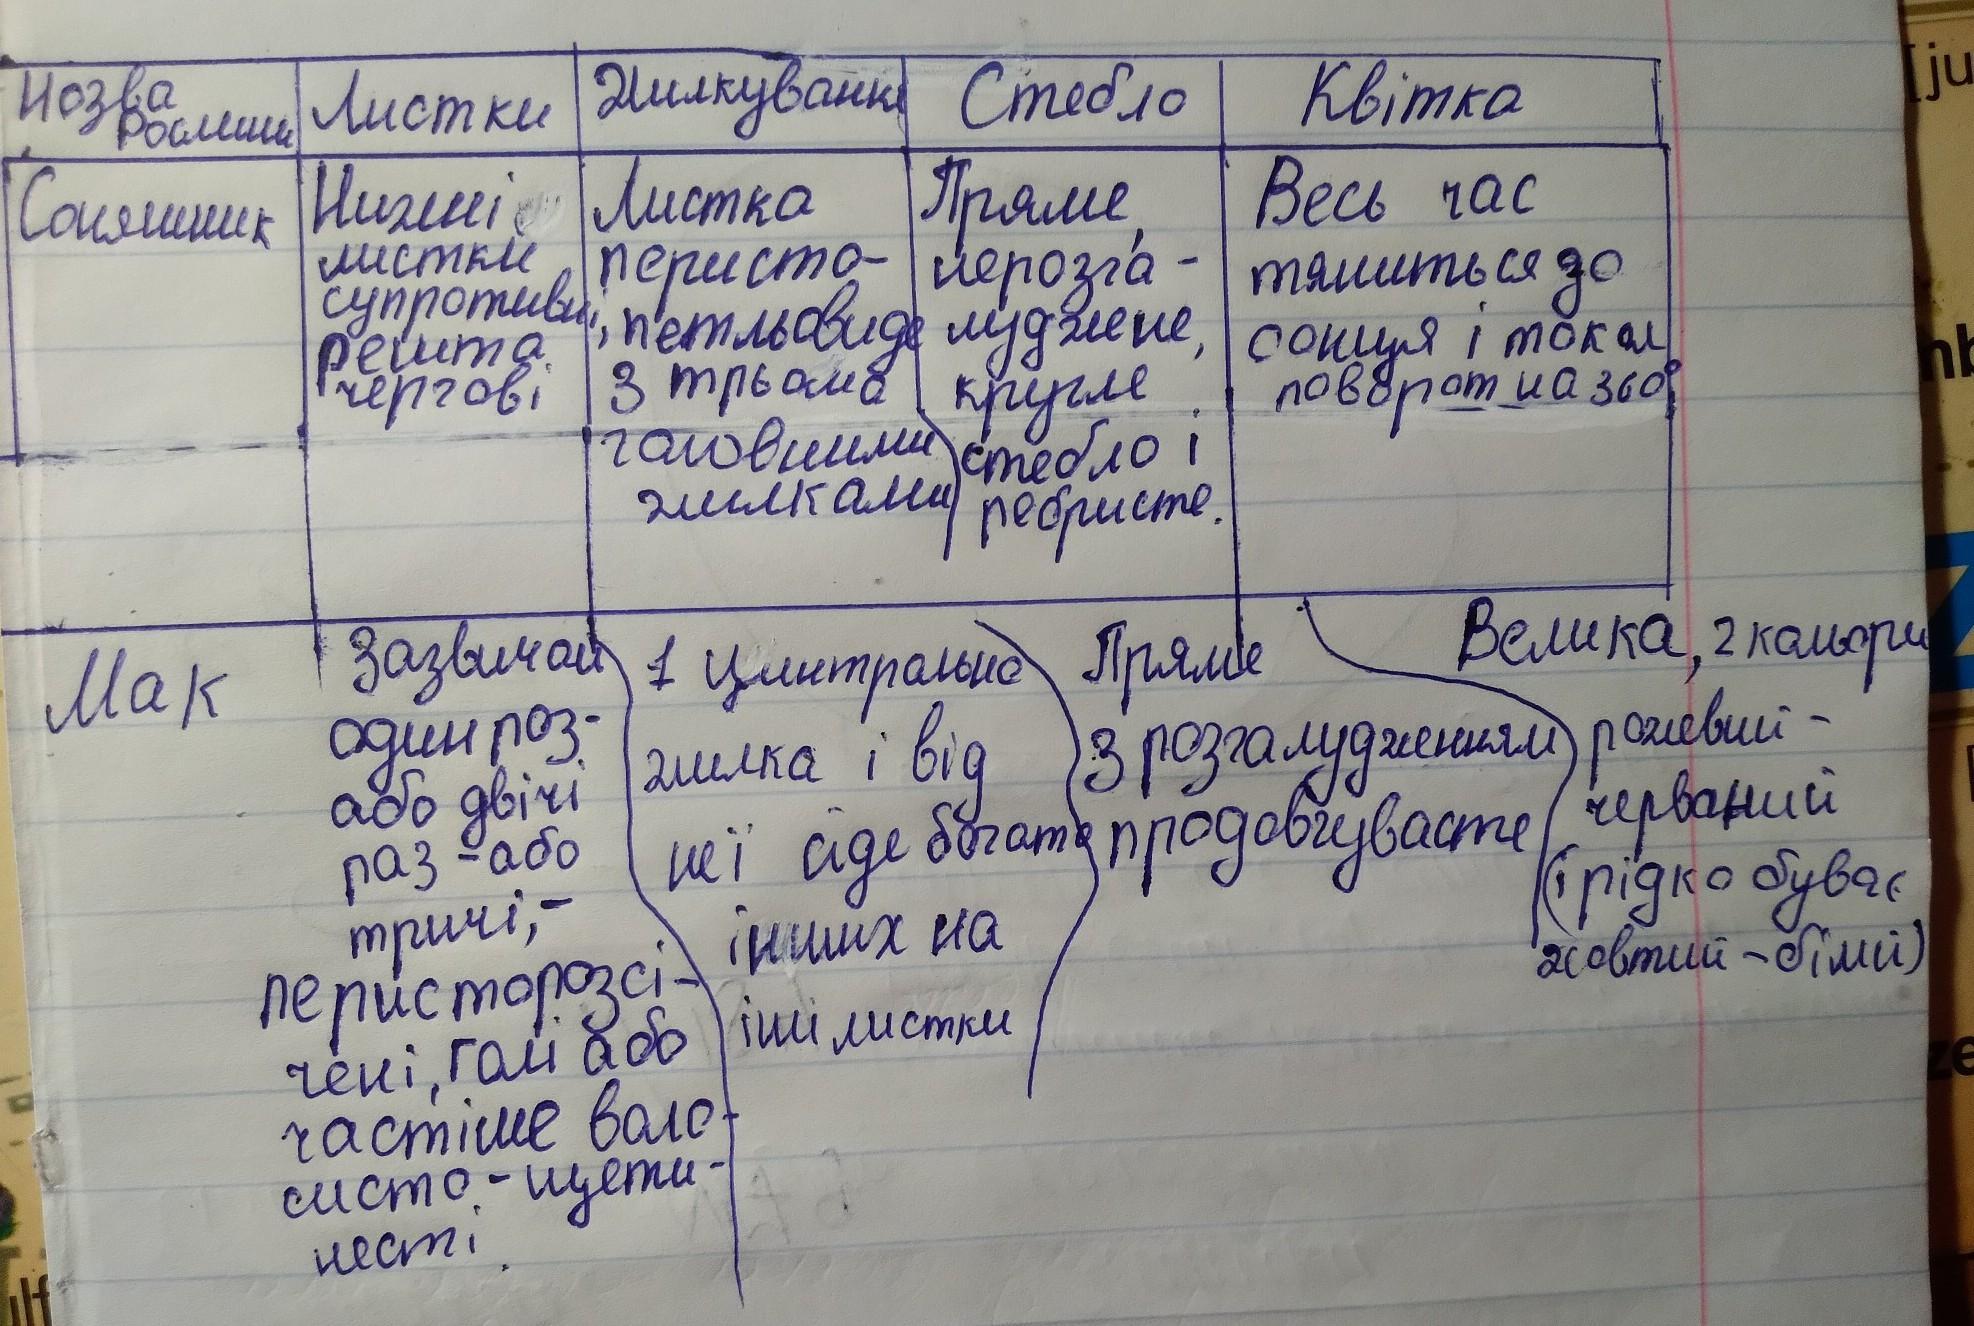 Назва
рослини
Листки
Жилкування
Стебло
Квітка
Соняшник
Нижні
листки
супротивні,
решта
чергові
Листка
перисто-
петльовиде
з трьома
головними
жилками
Пряме,
нерозга-
луджене,
кругле
стебло і
ребристе.
Весь час
тяниться до
сонця і
поворот на 360°
Мак
Зазвичай
один раз-
або двічі
раз-або
тричі,-
перисторозсі-
чені, голі або
частіше воло-
систо-щети-
несті.
1 центральна
жилка і від
неї йде богато
інших на
інші листки
Пряме
з розгалудженням
продовгувасте
Велика, 2 кольори
рожевий-
червоний
(і рідко буває
жовтий-білий)
[ju
nb
ze
ulf